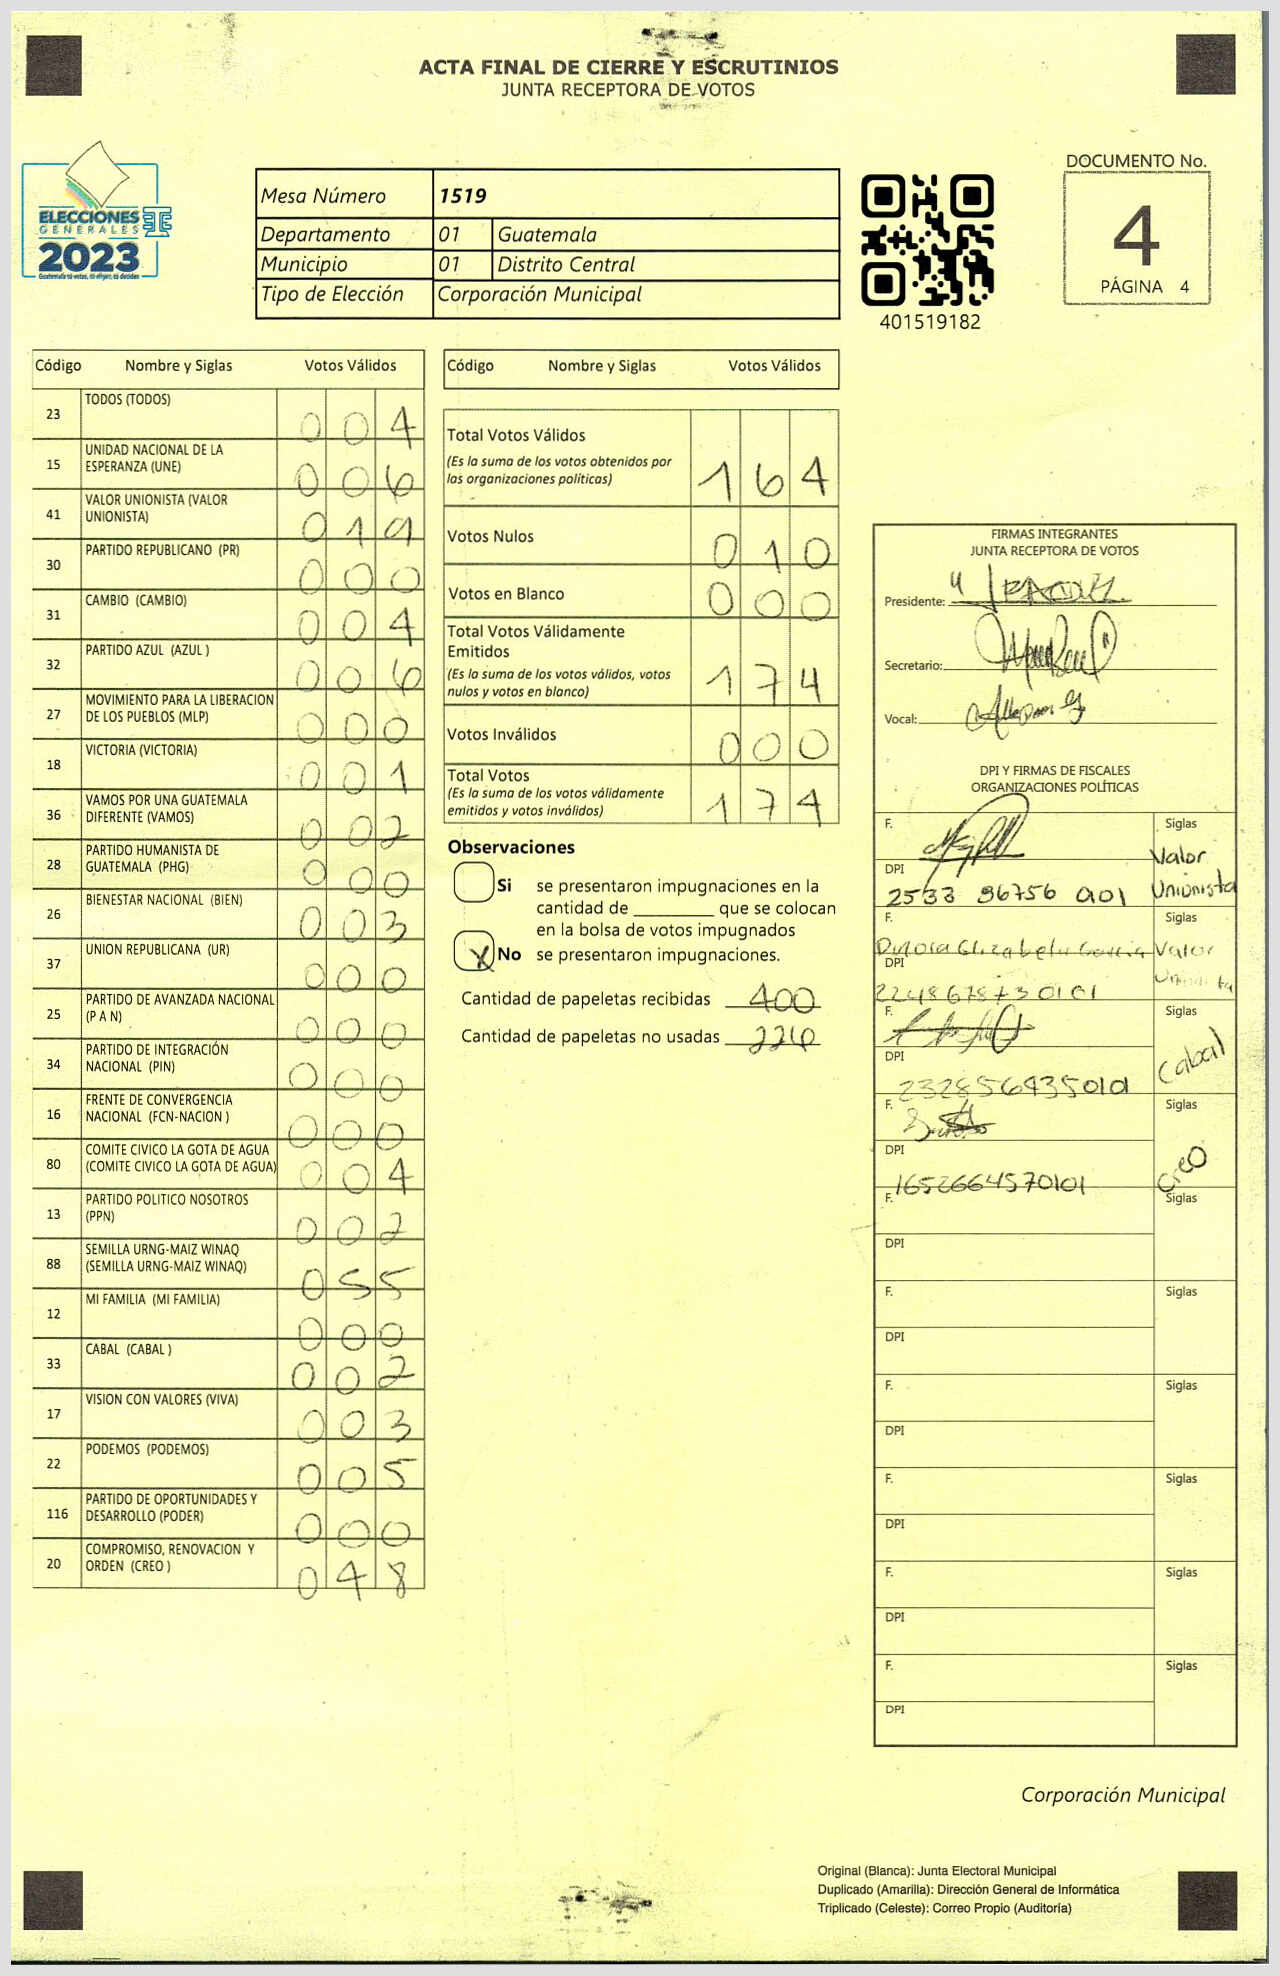 ACTA FINAL DE CIERRE Y ESCRUTINIOS
JUNTA RECEPTORA DE VOTOS
ELECCIONES
GENERALES
2023
Guatemala tú votas, tú eliges, tú decides
Mesa Número 1519
Departamento 01 Guatemala
Municipio 01 Distrito Central
Tipo de Elección Corporación Municipal
401519182
DOCUMENTO No.
4
PÁGINA 4
Código Nombre y Siglas Votos Válidos
23 TODOS (TODOS) 0 0 4
15 UNIDAD NACIONAL DE LA ESPERANZA (UNE) 0 0 6
41 VALOR UNIONISTA (VALOR UNIONISTA) 0 1 9
30 PARTIDO REPUBLICANO (PR) 0 0 0
31 CAMBIO (CAMBIO) 0 0 4
32 PARTIDO AZUL (AZUL ) 0 0 6
27 MOVIMIENTO PARA LA LIBERACION DE LOS PUEBLOS (MLP) 0 0 0
18 VICTORIA (VICTORIA) 0 0 1
36 VAMOS POR UNA GUATEMALA DIFERENTE (VAMOS) 0 0 2
28 PARTIDO HUMANISTA DE GUATEMALA (PHG) 0 0 0
26 BIENESTAR NACIONAL (BIEN) 0 0 3
37 UNION REPUBLICANA (UR) 0 0 0
25 PARTIDO DE AVANZADA NACIONAL (P A N) 0 0 0
34 PARTIDO DE INTEGRACIÓN NACIONAL (PIN) 0 0 0
16 FRENTE DE CONVERGENCIA NACIONAL (FCN-NACION ) 0 0 0
80 COMITE CIVICO LA GOTA DE AGUA (COMITE CIVICO LA GOTA DE AGUA) 0 0 4
13 PARTIDO POLITICO NOSOTROS (PPN) 0 0 2
88 SEMILLA URNG-MAIZ WINAQ (SEMILLA URNG-MAIZ WINAQ) 0 5 5
12 MI FAMILIA (MI FAMILIA) 0 0 0
33 CABAL (CABAL ) 0 0 2
17 VISION CON VALORES (VIVA) 0 0 3
22 PODEMOS (PODEMOS) 0 0 5
116 PARTIDO DE OPORTUNIDADES Y DESARROLLO (PODER) 0 0 0
20 COMPROMISO, RENOVACION Y ORDEN (CREO ) 0 4 8
Código Nombre y Siglas Votos Válidos
Total Votos Válidos 1 6 4
(Es la suma de los votos obtenidos por
las organizaciones políticas)
Votos Nulos 0 1 0
Votos en Blanco 0 0 0
Total Votos Válidamente
Emitidos 1 7 4
(Es la suma de los votos válidos, votos
nulos y votos en blanco)
Votos Inválidos 0 0 0
Total Votos 1 7 4
(Es la suma de los votos válidamente
emitidos y votos inválidos)
Observaciones
Si se presentaron impugnaciones en la
cantidad de ________ que se colocan
en la bolsa de votos impugnados
X No se presentaron impugnaciones.
Cantidad de papeletas recibidas 400
Cantidad de papeletas no usadas 226
FIRMAS INTEGRANTES
JUNTA RECEPTORA DE VOTOS
Presidente:
Secretario:
Vocal:
DPI Y FIRMAS DE FISCALES
ORGANIZACIONES POLÍTICAS
F. Siglas
Valor
Unionista
DPI
2533 86756 0101
F. Siglas
Elizabeth Garcia Valor
DPI
2248678730101
F. Siglas
Cabal
DPI
2328564350101
F. Siglas
Creo
DPI
1652664570101
F. Siglas
DPI
F. Siglas
DPI
F. Siglas
DPI
F. Siglas
DPI
F. Siglas
DPI
F. Siglas
DPI
Corporación Municipal
Original (Blanca): Junta Electoral Municipal
Duplicado (Amarilla): Dirección General de Informática
Triplicado (Celeste): Correo Propio (Auditoría)